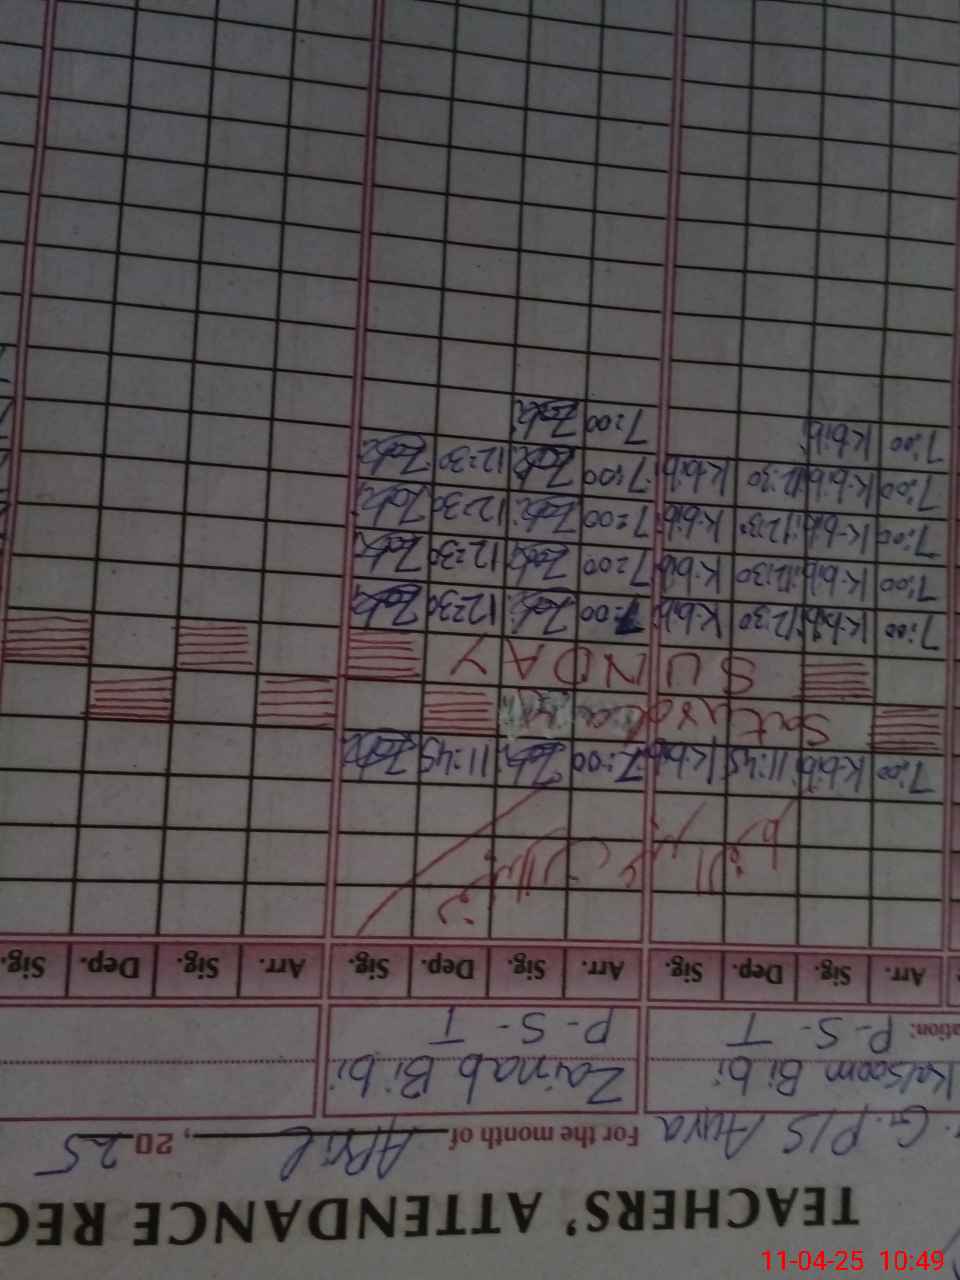 TEACHERS' ATTENDANCE REC
G.P/S For the month of April, 2025
Kalsoom Bibi Zainab Bibi
ation: P-S-T P-S-T
Arr. Sig. Dep. Sig. Arr. Sig. Dep. Sig. Arr. Sig. Dep. Sig.
7:00 K.bibi 11:45 K.bibi 7:00 11:45
Saturday
SUNDAY
7:00 K.bibi 12:30 K.bibi 7:00 12:30
7:00 K.bibi 12:30 K.bibi 7:00 12:30
7:00 K.bibi 12:30 K.bibi 7:00 12:30
7:00 K.bibi 12:30 K.bibi 7:00 12:30
7:00 K.bibi 7:00
11-04-25 10:49